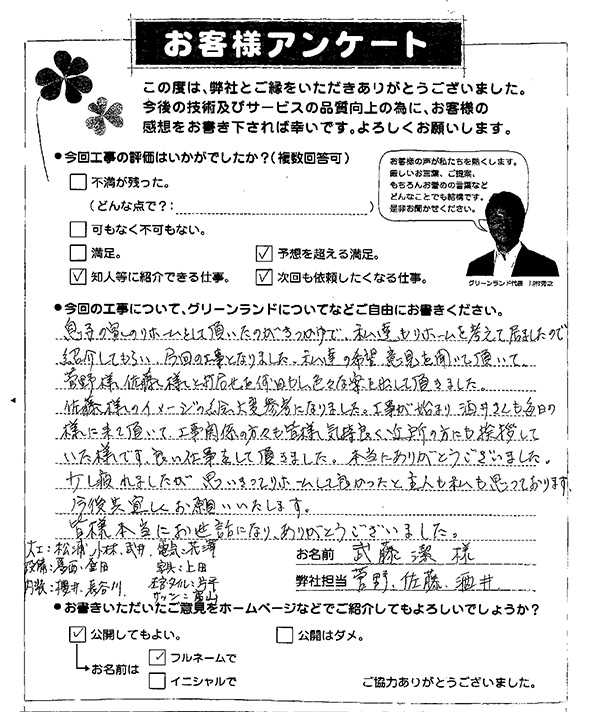 お客様アンケート
この度は、弊社とご縁をいただきありがとうございました。
今後の技術及びサービスの品質向上の為に、お客様の
感想をお書き下されば幸いです。よろしくお願いします。
●今回工事の評価はいかがでしたか?(複数回答可)
不満が残った。
(どんな点で?: )
可もなく不可もない。
満足。 ✓予想を超える満足。
✓知人等に紹介できる仕事。 ✓次回も依頼したくなる仕事。
お客様の声が私たちを熱くします。
厳しいお言葉、ご提案、
もちろんお誉めの言葉など
どんなことでも結構です。
是非お聞かせください。
グリーンランド代表
●今回の工事について、グリーンランドについてなどご自由にお書きください。
息子の家のリホームをして頂いたのがきっかけで、私達もリホームを考えて居ましたので
紹介してもらい、今回の工事となりました。私達の希望意見を聞いて頂いて、
菅野様、佐藤様と打合せを何回もし色々な案を出して頂きました。
佐藤様のイメージの絵大変参考になりました。工事が始まり酒井さんも毎日の
様に来て頂いて、工事関係の方々も皆様気持良く近所の方にも挨拶して
いた様です、良い仕事をして頂きました。本当にありがとうございました。
少し疲れましたが思いきってリホームして良かったと主人も私も思っております、
今後共宜しくお願いいたします。
皆様本当にお世話になり、ありがとうございました。
大工:松浦、小林、武井、電気:花澤
設備:葛西・金田 家具:上田
内装:櫻井、長谷川
サッシ:
お名前 武藤 潔 様
弊社担当 菅野、佐藤、酒井
●お書きいただいたご意見をホームページなどでご紹介してもよろしいでしょうか?
✓公開してもよい。 公開はダメ。
お名前は ✓フルネームで
イニシャルで
ご協力ありがとうございました。